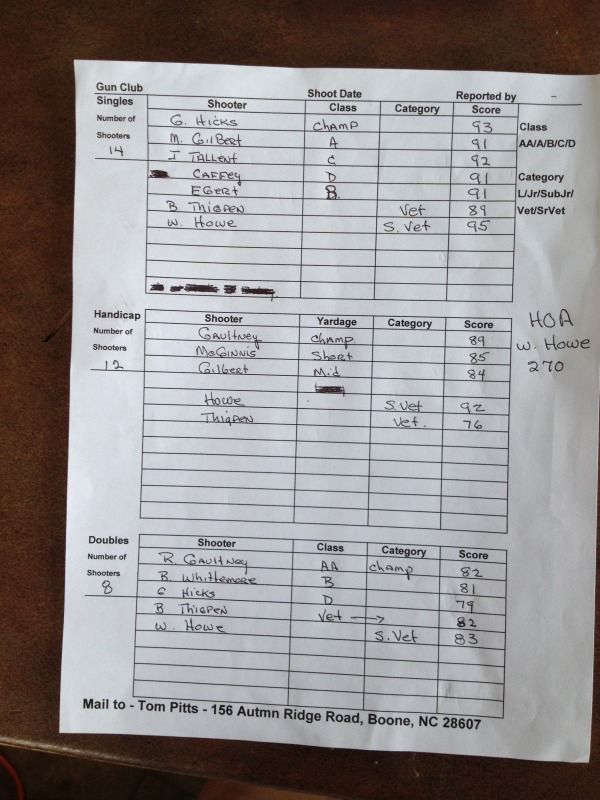 Gun Club Shoot Date Reported by -
Singles Shooter Class Category Score
Number of G. Hicks Champ 93 Class
Shooters M. Gilbert A 91 AA/A/B/C/D
14 J Tallent C 92
Caffey D 91 Category
Egert B 91 L/Jr/SubJr/
B Thigpen Vet 89 Vet/SrVet
W. Howe S. Vet 95
Handicap Shooter Yardage Category Score HOA
Number of Gaultney Champ 89 W. Howe
Shooters McGinnis Short 85 270
12 Gilbert Mid 84
Howe S.Vet 92
Thigpen Vet. 76
Doubles Shooter Class Category Score
Number of R. Gaultney AA Champ 82
Shooters B. Whittemore B 81
8 G Hicks D 79
B Thigpen Vet → 82
W. Howe S. Vet 83
Mail to - Tom Pitts - 156 Autmn Ridge Road, Boone, NC 28607